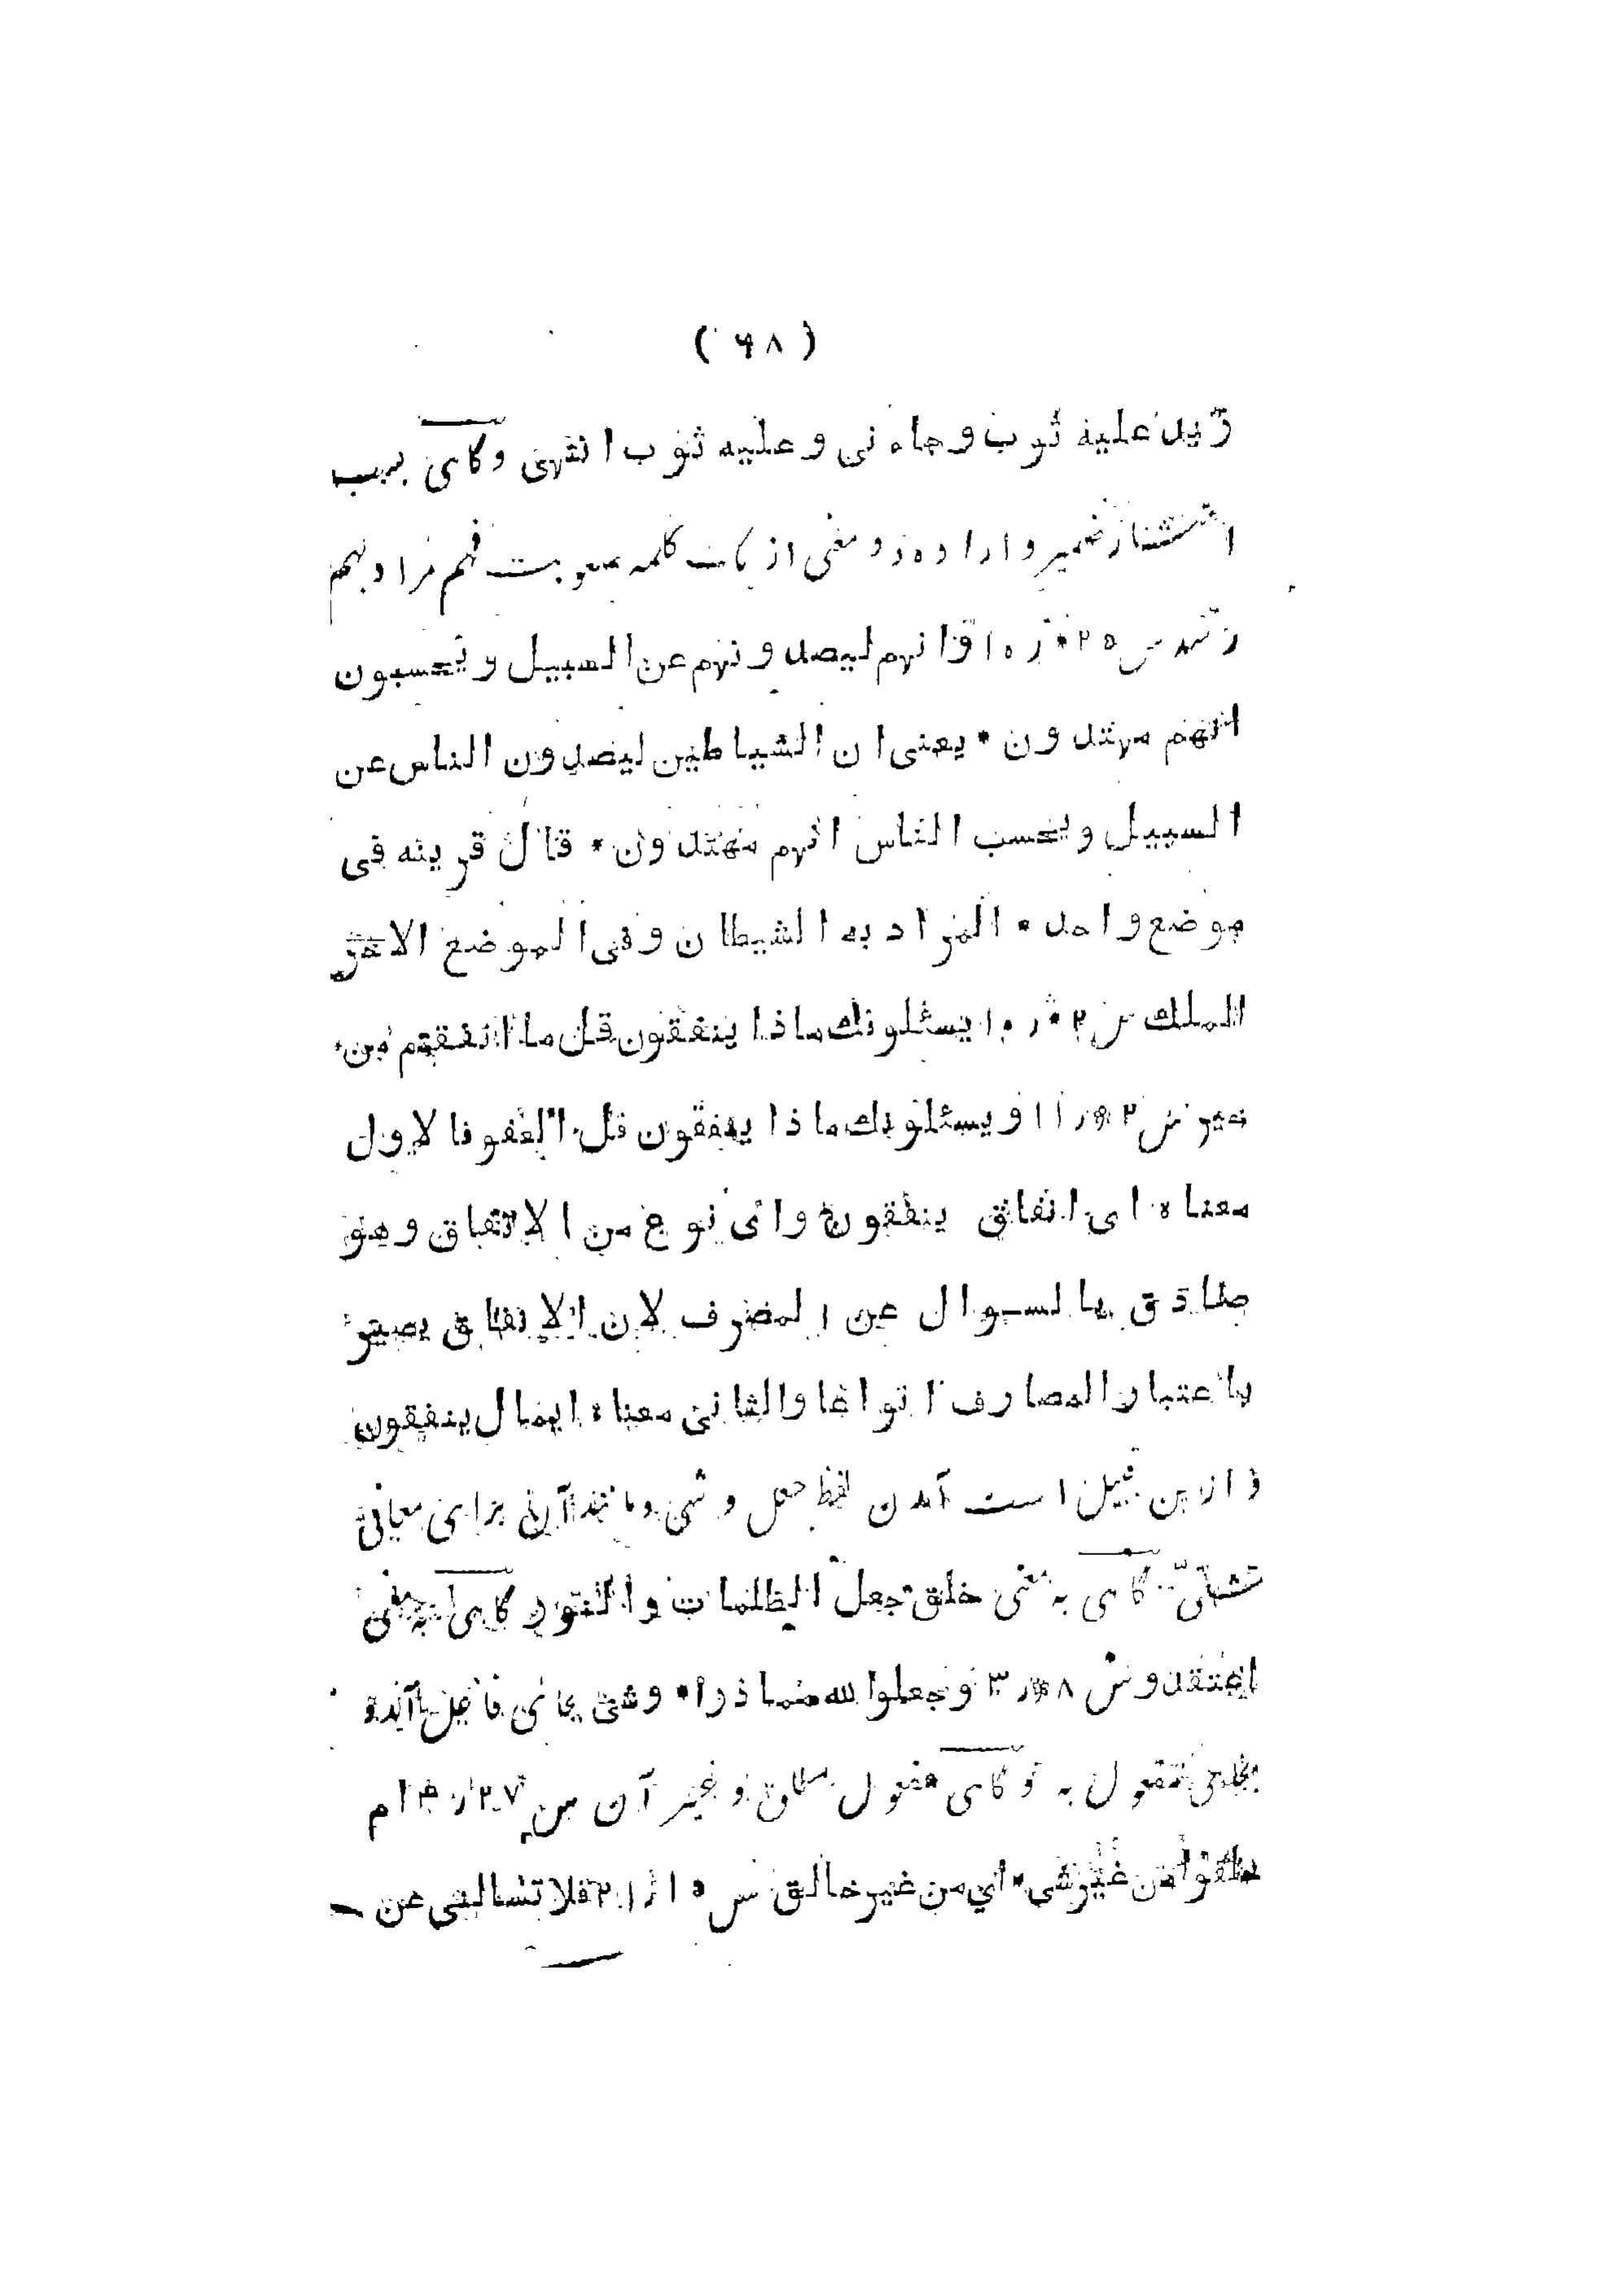 ( ۶۸ )
زید علیه ثوب وجاء نی وعلیه ثوب انتهی وگاهی بسبب
انتشار ضمیر و اراده دو معنی از یک کلمه صعوبت فهم مراد بهم
رسد س ۲۵ * ر ۱۰ وانهم لیصدونهم عن السبیل ویحسبون
انهم مهتدون * یعنی ان الشیاطین لیصدون الناس عن
السبیل ویحسب الناس انهم مهتدون * قال قرینه فی
موضع واحد * المراد به الشیطان وفی الموضع الاخر
الملك س ۲ * ر ۱۰ یسئلونك ماذا ینفقون قل ما انفقتم من
خیر س ۲ * ر ۱۱ ویسئلونك ماذا ینفقون قل العفو فالاول
معناه ای انفاق ینفقون وای نوع من الانفاق وهو
صادق بالسوال عن المصرف لان الانفاق یصیر
باعتبار المصارف انواعا والثانی معناه ای مال ینفقون
و ازین قبیل است آمدن لفظ جعل و شی و مانند آن برای معانی
شتی گاهی به معنی خلق جعل الظلمات والنور گاهی به معنی
اعتقد و س ۸ * ر ۳ وجعلوا لله مما ذرا * وشی بجای فاعل آید
بجای مفعول به و گاهی مفعول مطلق و غیر آن س ۲۷ ر ۴ ام
خلقوا من غیر شی * ای من غیر خالق س * ۱۵ ر ۲۱ فلا تسالنی عن